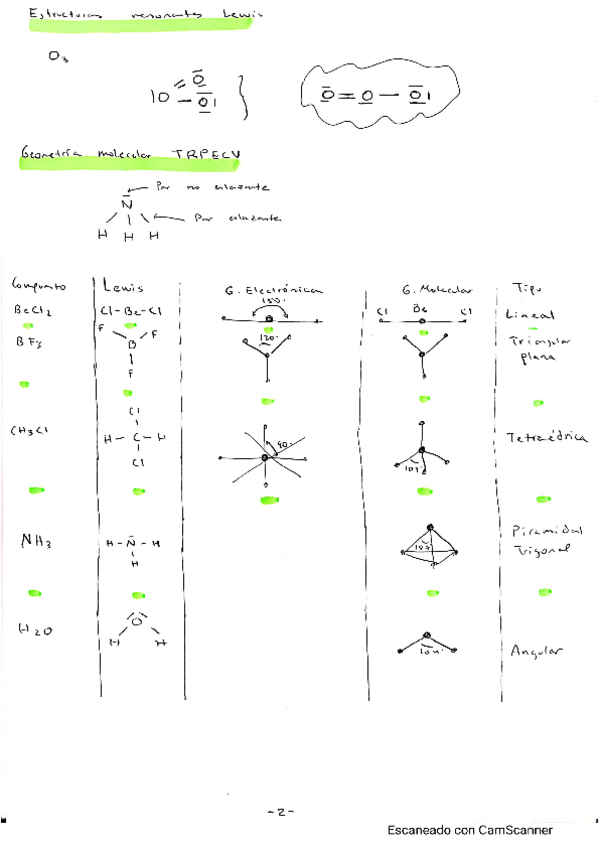 Estructuras resonantes Lewis
O3
IO = O
- OI
O = O - OI
Geometría molecular TRPECV
Par no enlazante
N
Par enlazante
H H H
Compuesto Lewis G. Electrónica G. Molecular Tipo
180°
BeCl2 Cl-Be-Cl Cl Be Cl Lineal
BF3 F F 120° Triangular
B plana
F
Cl
CH3Cl H - C - H 90° 109° Tetraédrica
Cl
NH3 H - N - H 107 Piramidal
H Trigonal
H2O O
H H 104° Angular
-2-
Escaneado con CamScanner